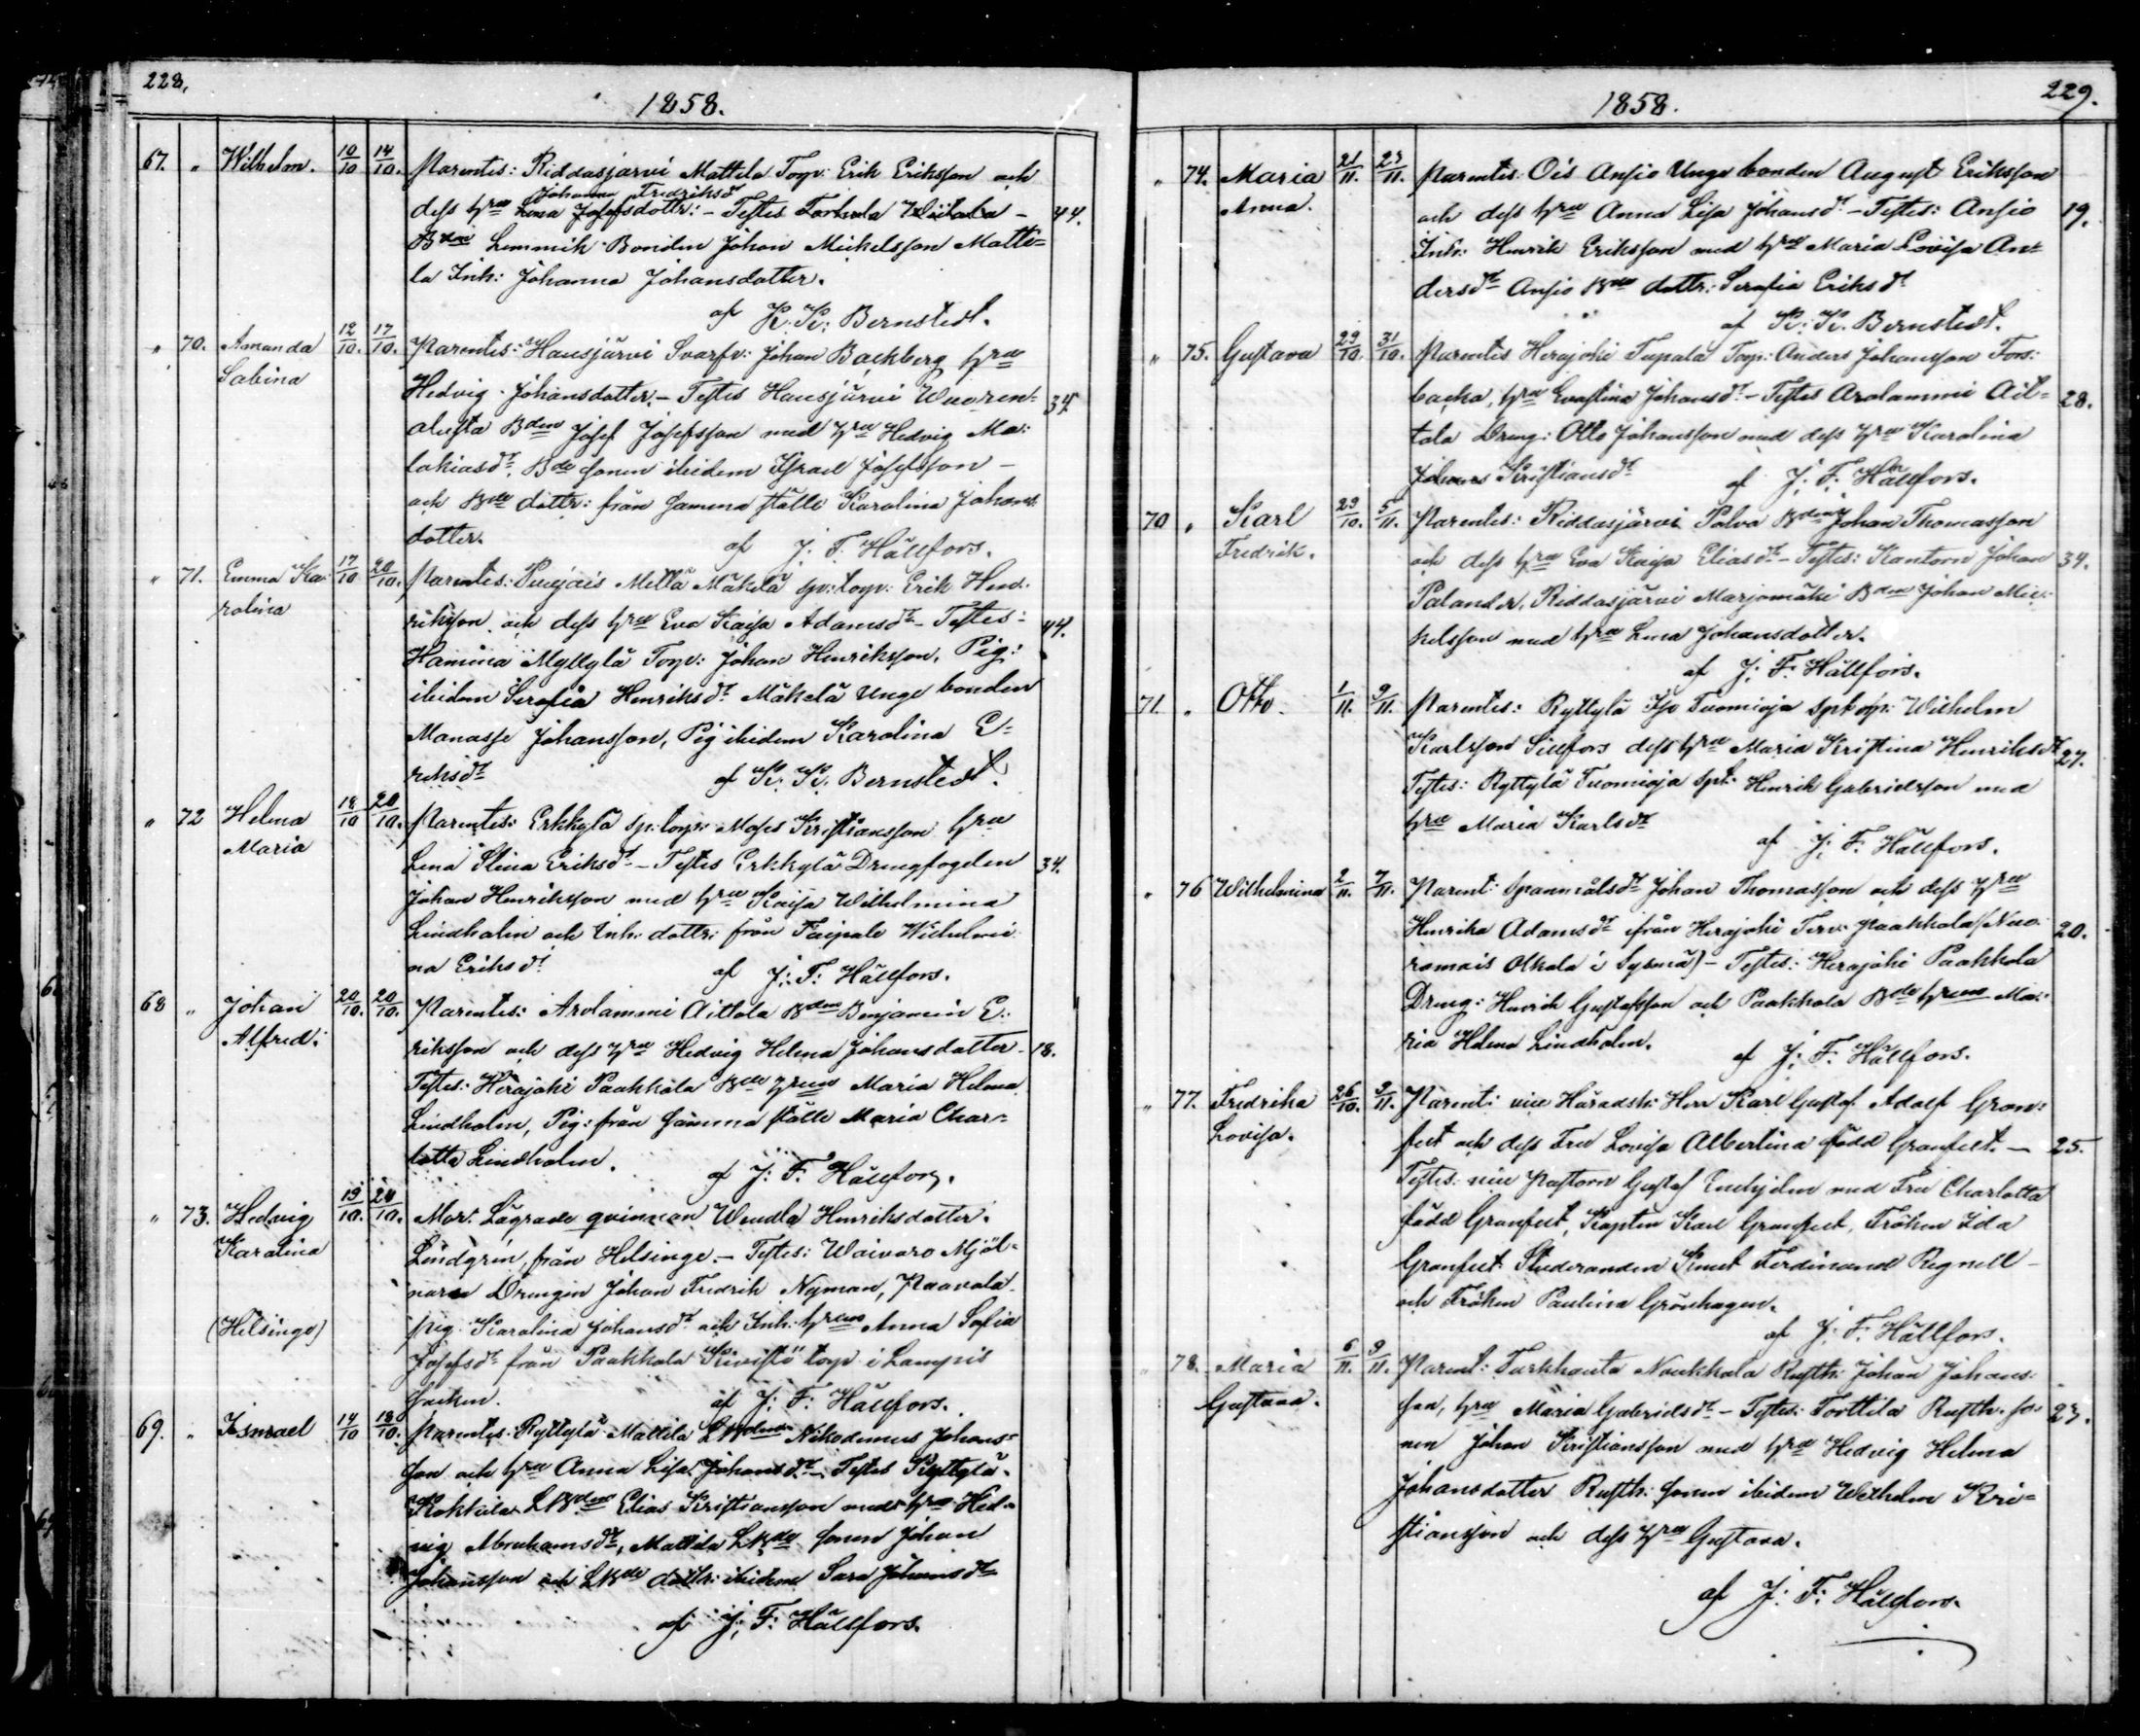 228.
1858.
67. " Wilhelm. 10/10 14/10. Parentes: Riddasjärvi Mattila Torp: Erik Eriksson och
Johanna Fredriksdr
dess hru Lena Josefsdottr: - Testes Torhola Wiitala - 44.
Bden Lemmik Bonden Johan Mickelsson Matti=
la Inh: Johanna Johansdotter.
af K. K: Bernstedt.
" 70. Amanda 12/10. 17/10. Parentes: Hausjärvi Svarfv: Johan Backberg hru
Sabina
Hedvig Johansdotter. - Testes Hausjärvi Wuoren= 34.
alusta Bden Josef Josefsson med hru Hedvig Ma:
lakiasdr. Bde sonen ibidem Israel Josefsson -
och Bde dottr: från samma ställe Karolina Johans
dotter.
af J. F. Hällfors.
" 71. Emma Ka- 17/10 20/10. Parentes: Puujais Mellä Mäkelä sp: torp: Erik Hen-
rolina
riksson och dess hru Eva Kaisa Adamsdr - Testes: 44.
Hamina Myllylä Torp: Johan Henriksson, Pig:
ibidem Serafia Henriksdr. Mäkelä Unge bonden
Manasse Johansson, Pig ibidem Karolina E=
riksdr
af K. K. Bernstedt.
" 72 Helena 18/10 20/10. Parentes: Erkkylä sp: torp: Moses Kristiansson hru
Maria
Lena Stina Eriksdr - Testes Erkkylä Drengfogden 34.
Johan Henriksson med hru Kaisa Wilhelmina
Lindholm och Inh: dottr: från Taipale Wilhelmi
na Eriksdr
af J. F. Hällfors.
68 " Johan 20/10. 20/10. Parentes: Arolammi Aittola Bden Benjamin E:
Alfred.
riksson och dess hru Hedvig Helena Johansdotter - 18.
Testes: Herajoki Paakkola Bde hrun Maria Helena
Lindholm, Pig: från samma ställe Maria Char=
lotta Lindholm.
af J. F. Hällfors.
" 73. Hedvig 19/10. 24/10. Mor: Lägrade qvinnan Wendla Henriksdotter
Karolina
Lindgrén, från Helsinge. - Testes: Waivaro Mjöl=
nare Drengen Johan Fredrik Nyman, Paavola
(Helsinge) pig: Karolina Johansdr och Inh: hrun Anna Sofia
Josefsdr från Paakkola Kivistö torp i Lampis
socken.
af J. F. Hällfors.
69. " Ismael 14/10 18/10. Parentes: Ryttylä Mattila LBonden Nikodemus Johans=
son och hru Anna Lisa Johansdr - Testes Ryttylä
Kokkila LBden Elias Kristiansson med hru Hed=
vig Abrahamsdr, Mattila LBde sonen Johan
Johansson och LBde dottr: ibidem Sara Johansdr
af J. F. Hällfors.
229.
1858.
" 74. Maria 21/11. 23/11. Parentes: Ois Ansio Unge bonden August Eriksson
Anna.
och dess hru Anna Lisa Johansdr - Testes: Ansio 19.
Inh: Henrik Eriksson med hru Maria Lovisa An=
dersdr Ansio Bde dottr: Serafia Eriksdr
af K. K. Bernstedt.
" 75. Gustava 29/10. 31/10. Parentes Herajoki Tupala Torp: Anders Johansson Fors:
backa, hru Evastina Johansdr - Testes Arolammi Ait= 28.
tola Dreng: Otto Johansson med dess hru Karolina
Johanna Kristiansdr
af J. F. Hällfors.
70 " Karl 29/10. 5/11. Parentes: Riddasjärvi Palva Bden Johan Thomasson
Fredrik.
och dess hru Eva Kaisa Eliasdr - Testes: Kantorn Johan 34.
Palander, Riddasjärvi Marjomäki Bden Johan Mic-
kelsson med hru Lena Johansdotter.
af J. F. Hällfors.
71. " Otto. 1/11. 9/11. Parentes: Ryttylä Tuomioja Wilhelm
Karlsson Sillfors dess hru Maria Kristina Henriksdr 27.
Testes: Ryttylä Tuomioja Henrik Gabrielsson med
hru Maria Karlsdr
af J. F. Hällfors.
" 76 Wilhelmina 2/11. 7/11. Parent: Spannmålsdr Johan Thomasson och dess hru
Henrika Adamsdr ifrån Herajoki Paakkola (Nuo- 20.
ramois Olkola i Sysmä) - Testes: Herajoki Paakkola
Dreng: Henrik Gustafsson och Paakkola Bde hrun Ma-
ria Helena Lindholm.
af J. F. Hällfors.
" 77. Fredrika 26/10. 9/11. Parent: vice Häradsh: Herr Karl Gustaf Adolf Gran=
Lovisa.
felt och dess Fru Lovisa Albertina född Granfelt. - 25.
Testes: vice Pastorn Gustaf Enehjelm med Fru Charlotta
född Granfelt, Kapten Karl Granfelt, Fröken Ida
Granfelt Studeranden Knut Ferdinand Regnell -
och Fröken Paulina Grönhagen.
af J. F. Hällfors.
" 78. Maria 6/11. 9/11. Parent: Turkhauta Naukkala Rusth: Johan Johans-
Gustava.
son, hru Maria Gabrielsdr - Testes: Torttila Rusth. so- 23.
nen Johan Kristiansson med hru Hedvig Helena
Johansdotter Rusth: sonen ibidem Wilhelm Kri=
stiansson och dess hru Gustava.
af J. F. Hällfors.